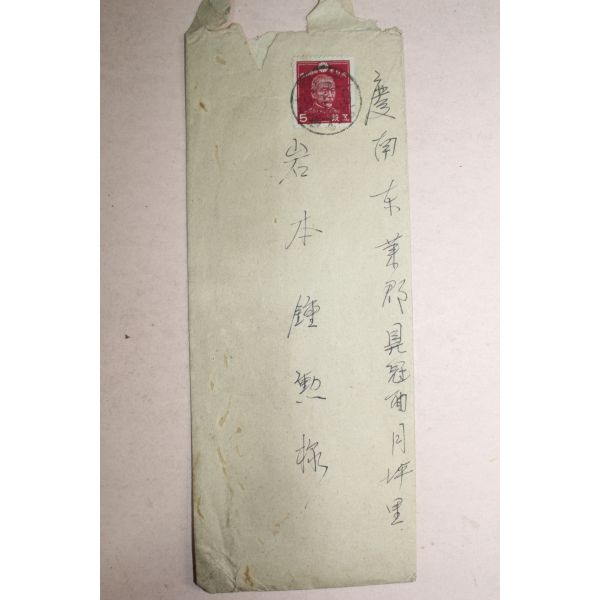 慶南东萊郡見冠面月坪里
岩本鍾勲様
5 銭